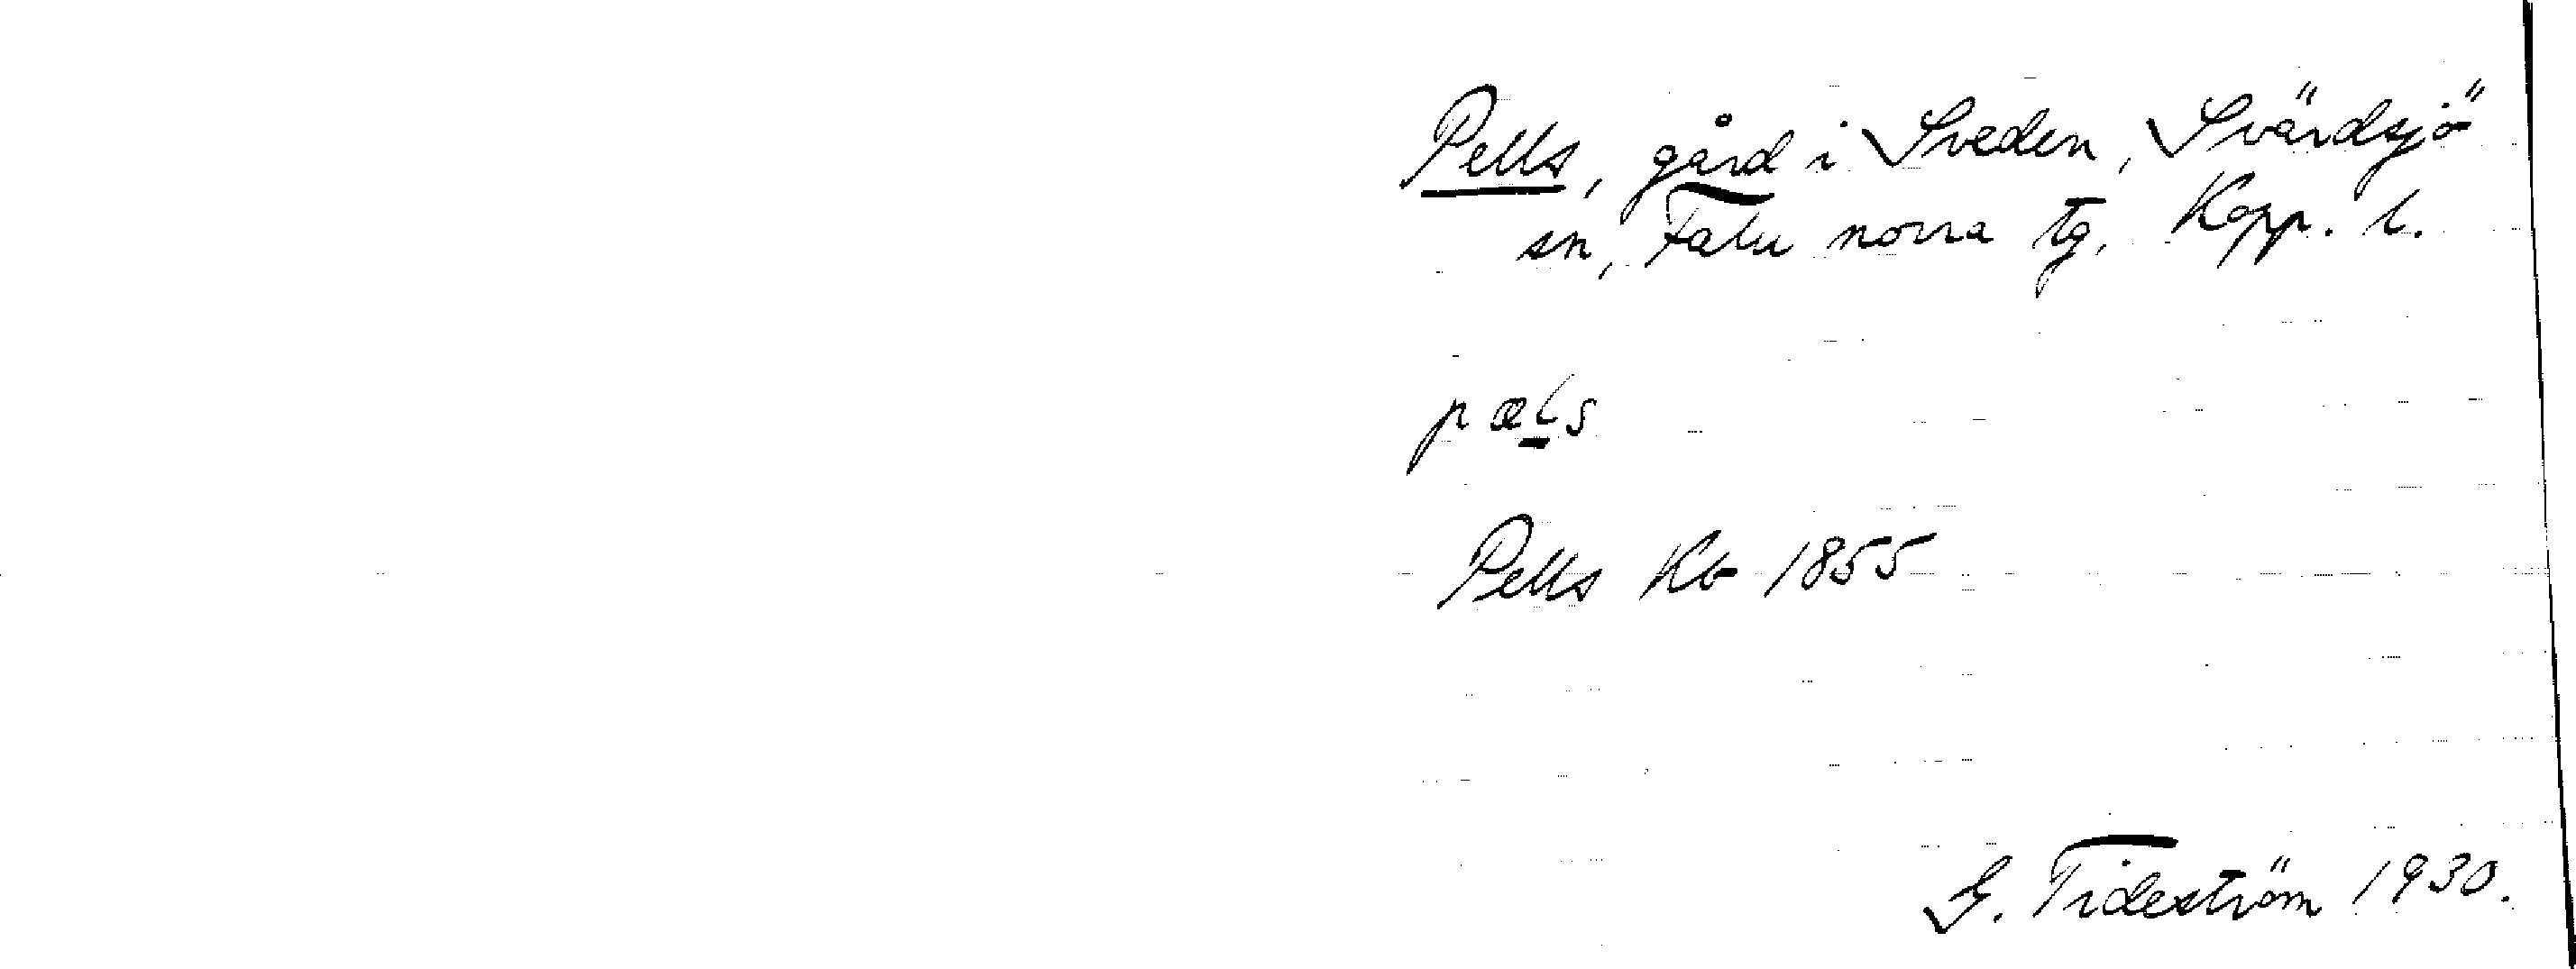 Pells, gård i Sveden, Svärdsjö
sn, Falu norra tg, Kopp. l.
pæls
Pells Kb 1855
G. Tideström 1930.